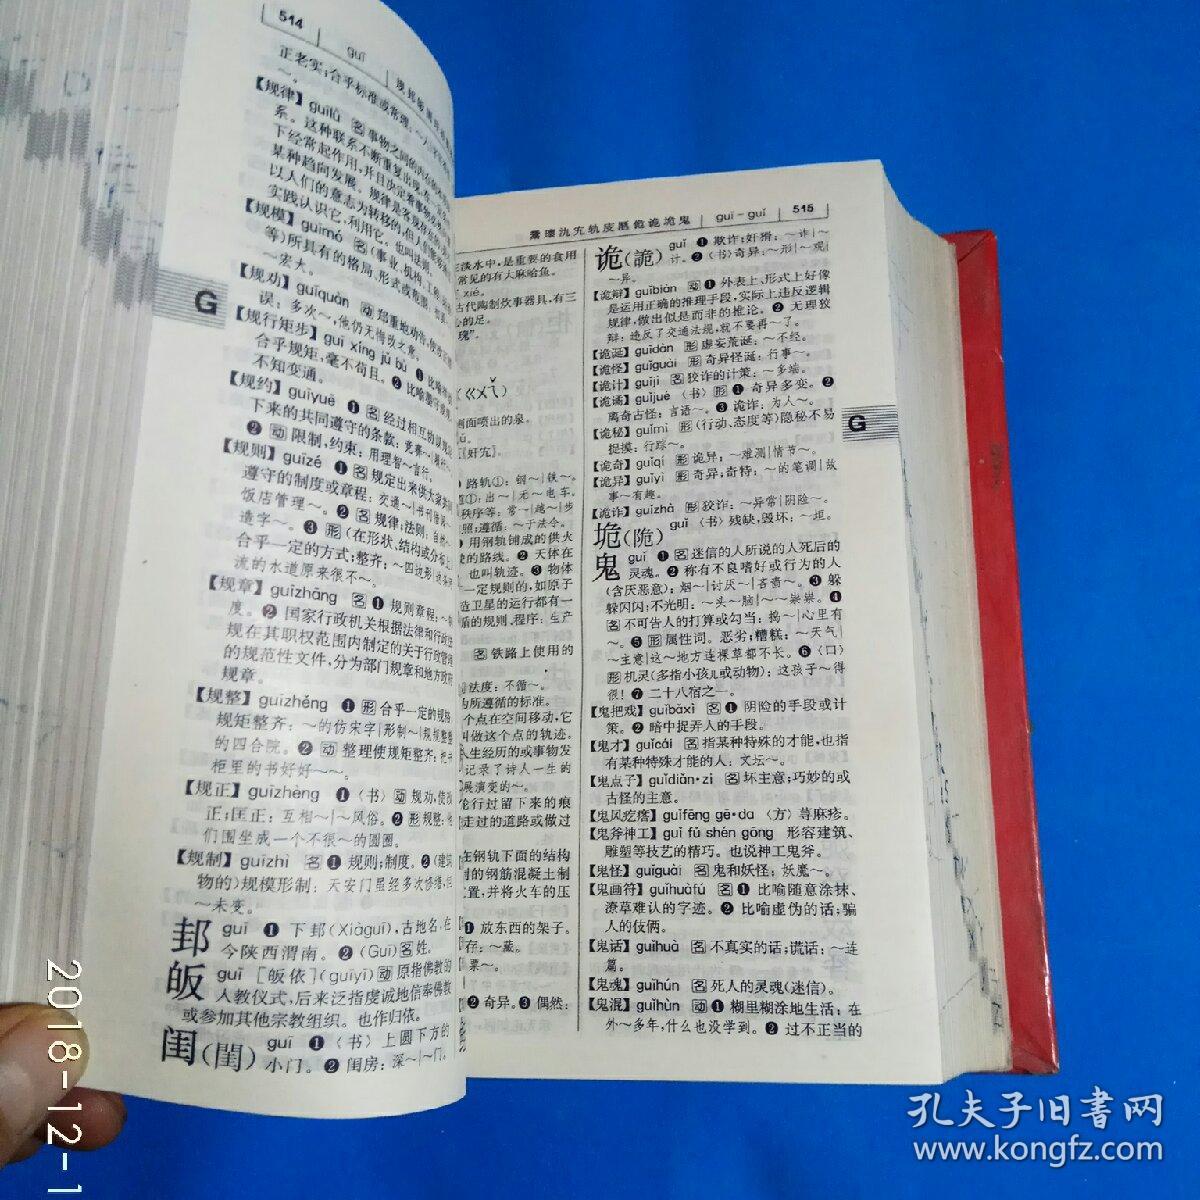 514
guī
正老实;合乎标准或常理:
～。
【规律】guīlǜ 名 事物之间的内在的
系。这种联系不断重复出现,在一定
下经常起作用,并且决定着事物
某种趋向发展。规律是客观存在的,
以人们的意志为转移的,但人们能
实践认识它,利用它。也叫法则。
【规模】guīmó 名 (事业、机构、工程、
等)所具有的格局、形式或范围:
～宏大。
【规劝】guīquàn 动 郑重地劝告,使改正
误:多次～,他仍无悔改之意。
【规行矩步】guī xíng jǔ bù ❶ 比喻
合乎规矩,毫不苟且。❷ 比喻墨守成
不知变通。
【规约】guīyuē ❶ 名 经过相互协议规定
下来的共同遵守的条款:竞赛～
❷ 动 限制,约束:用理智～言行。
【规则】guīzé ❶ 名 规定出来供大家
遵守的制度或章程:交通～|书刊借阅～
饭店管理～。❷ 名 规律;法则:自然～
造字～。❸ 形 (在形状、结构或分布上)
合乎一定的方式;整齐:～四边形
流的水道原来很不～。
【规章】guīzhāng 名 ❶ 规则章程:～制
度。❷ 国家行政机关根据法律和行政法
规在其职权范围内制定的关于行政管理
的规范性文件,分为部门规章和地方政府
规章。
【规整】guīzhěng ❶ 形 合乎一定的规格
规矩整齐:～的仿宋字|形制～|
的四合院。❷ 动 整理使规矩整齐:把书
柜里的书好好～～。
【规正】guīzhèng ❶ 〈书〉动 规劝,使改
正;匡正:互相～|～风俗。❷ 形 规整:他
们围坐成一个不很～的圆圈。
【规制】guīzhì 名 ❶ 规则;制度。❷ (建筑
物的)规模形制:天安门虽经多次修缮,但
～未变。
邽 guī ❶ 下邽(Xiàguī),古地名,在
今陕西渭南。❷ (Guī) 名 姓。
皈 guī [皈依](guīyī) 动 原指佛教的
入教仪式,后来泛指虔诚地信奉佛教
或参加其他宗教组织。也作归依。
闺(閨) guī ❶ 〈书〉上圆下方的
小门。❷ 闺房:深～|～门。
G
guī－guǐ 515
淡水中,是重要的食用
常见的有大麻哈鱼。
xié。
古代陶制炊事器具,有三
心的足。
瑰”。
(ㄍㄨㄟˇ)
侧面喷出的泉。
[奸宄]
路轨①:钢～|铁～。
道①:出～|无～电车。
秩序等:常～|越～|步
照;遵循:～于法令。
用钢轨铺成的供火
使的路线。❷ 天体在
也叫轨迹。❸ 物体
一定规则的,如原子
造卫星的运行都有一
循的规则,程序:生产
名 铁路上使用的
法度:不循～。
为所遵循的标准。
个点在空间移动,它
叫做这个点的轨迹。
人生经历的或事物发
记录了诗人一生的
展演变的～。
轮行过留下来的痕
走过的道路或做过
在钢轨下面的结构
制的钢筋混凝土制
位置,并将火车的压
❶ 放东西的架子。
存:～藏。
票～。
❷ 奇异。❸ 偶然:
诡(詭) guǐ ❶ 欺诈;奸猾:～诈|～
计。❷ 〈书〉奇异:～形|～观
～异。
【诡辩】guǐbiàn 动 ❶ 外表上、形式上好像
是运用正确的推理手段,实际上违反逻辑
规律,做出似是而非的推论。❷ 无理狡
辩:违反了交通法规,就不要再～了。
【诡诞】guǐdàn 形 虚妄荒诞:～不经。
【诡怪】guǐguài 形 奇异怪诞:行事～。
【诡计】guǐjì 名 狡诈的计策:～多端。
【诡谲】guǐjué 〈书〉形 ❶ 奇异多变。❷
离奇古怪:言语～。❸ 诡诈:为人～。
【诡秘】guǐmì 形 (行动、态度等)隐秘不易
捉摸:行踪～。
【诡奇】guǐqí 形 诡异:～难测|情节～。
【诡异】guǐyì 形 奇异;奇特:～的笔调|故
事～有趣。
【诡诈】guǐzhà 形 狡诈:～异常|阴险～。
垝(陒) guǐ 〈书〉残缺,毁坏:～垣。
鬼 guǐ ❶ 名 迷信的人所说的人死后的
灵魂。❷ 称有不良嗜好或行为的人
(含厌恶意):烟～|讨厌～|吝啬～。❸ 躲
躲闪闪;不光明:～头～脑|～～祟祟。❹
名 不可告人的打算或勾当:捣～|心里有
～。❺ 形 属性词。恶劣;糟糕:～天气|
～主意|这～地方连棵草都不长。❻ 〈口〉
形 机灵(多指小孩儿或动物):这孩子～得
很!❼ 二十八宿之一。
【鬼把戏】guǐbǎxì 名 ❶ 阴险的手段或计
策。❷ 暗中捉弄人的手段。
【鬼才】guǐcái 名 指某种特殊的才能,也指
有某种特殊才能的人:文坛～。
【鬼点子】guǐdiǎn·zi 名 坏主意;巧妙的或
古怪的主意。
【鬼风疙瘩】guǐfēng gē·da 〈方〉荨麻疹。
【鬼斧神工】guǐ fǔ shén gōng 形容建筑、
雕塑等技艺的精巧。也说神工鬼斧。
【鬼怪】guǐguài 名 鬼和妖怪:妖魔～。
【鬼画符】guǐhuàfú 名 ❶ 比喻随意涂抹、
潦草难认的字迹。❷ 比喻虚伪的话;骗
人的伎俩。
【鬼话】guǐhuà 名 不真实的话;谎话:～连
篇。
【鬼魂】guǐhún 名 死人的灵魂(迷信)。
【鬼混】guǐhùn 动 ❶ 糊里糊涂地生活:在
外～多年,什么也没学到。❷ 过不正当的
G
2018-12-1
孔夫子旧书网
www.kongfz.com